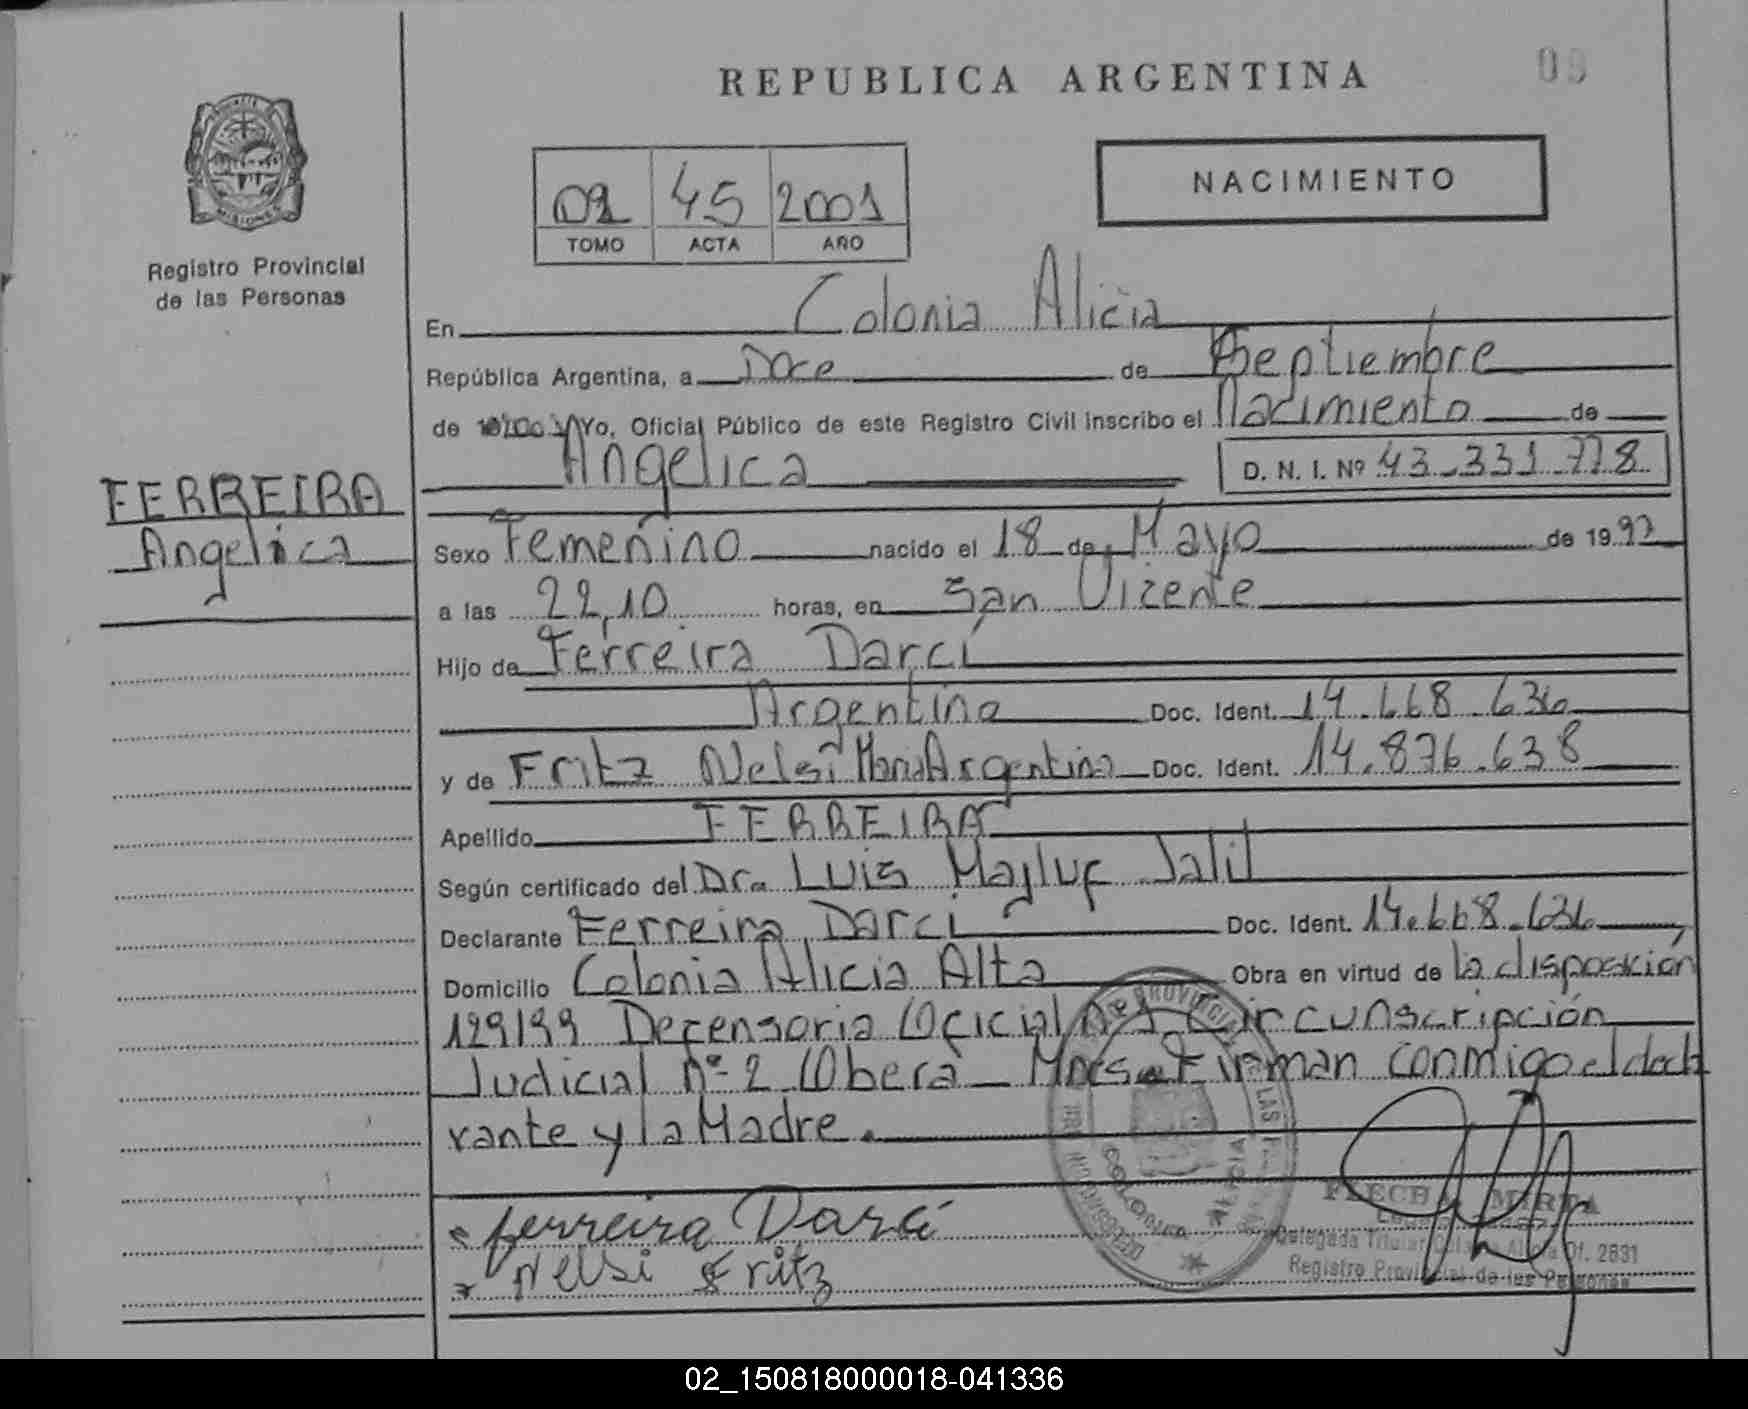 REPUBLICA ARGENTINA
09
NACIMIENTO
02 45 2001
TOMO ACTA AÑO
Registro Provincial
de las Personas
En Colonia Alicia
República Argentina, a Doce de Septiembre
de Yo, Oficial Público de este Registro Civil inscribo el Nacimiento de
Angelica D. N. I. Nº 43.331.778
FERREIRA
Angelica
Sexo Femenino nacido el 18 de Mayo de 1997
a las 22,10 horas, en San Vicente
Hijo de Ferreira Darci
Argentino Doc. Ident. 14.668.636
y de Fritz Nelsi Maria Argentina Doc. Ident. 14.876.638
Apellido FERREIRA
Según certificado del Dr. Luis Mayluf Jalil
Declarante Ferreira Darci Doc. Ident. 14.668.636
Domicilio Colonia Alicia Alta Obra en virtud de la disposición
129/99 Defensoria Oficial Nº 1 Circunscripción
Judicial nº 2 Oberá Mnes. Firman conmigo el decla
rante y la Madre.
Ferreira Darci
Nelsi Fritz
COLONIA ALICIA
FLECHA MIRTA
Delegada Titular Colonia Alicia Of. 2831
Registro Provincial de las Personas
02_150818000018-041336